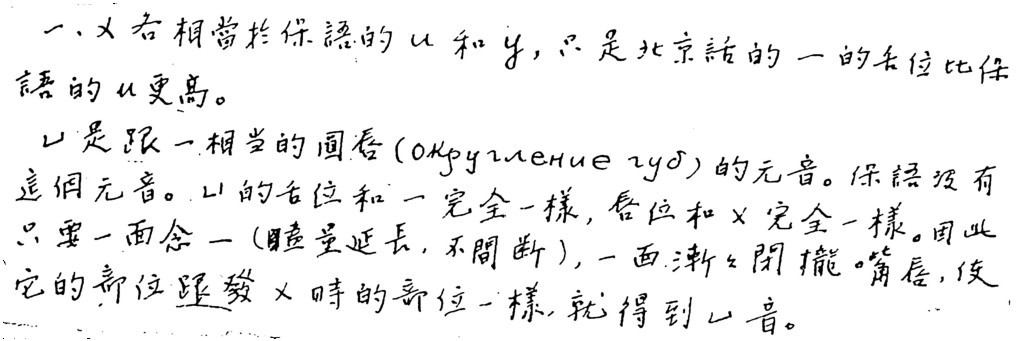 一、ㄨ各相當於保語的и和у，只是北京話的一的舌位比保
語的и更高。
ㄩ是跟一相当的圓唇(округление губ)的元音。保語没有
這個元音。ㄩ的舌位和一完全一樣，唇位和ㄨ完全一樣。因此
只要一面念一(儘量延長，不間断)，一面漸々閉攏嘴唇，使
它的部位跟發ㄨ時的部位一樣，就得到ㄩ音。